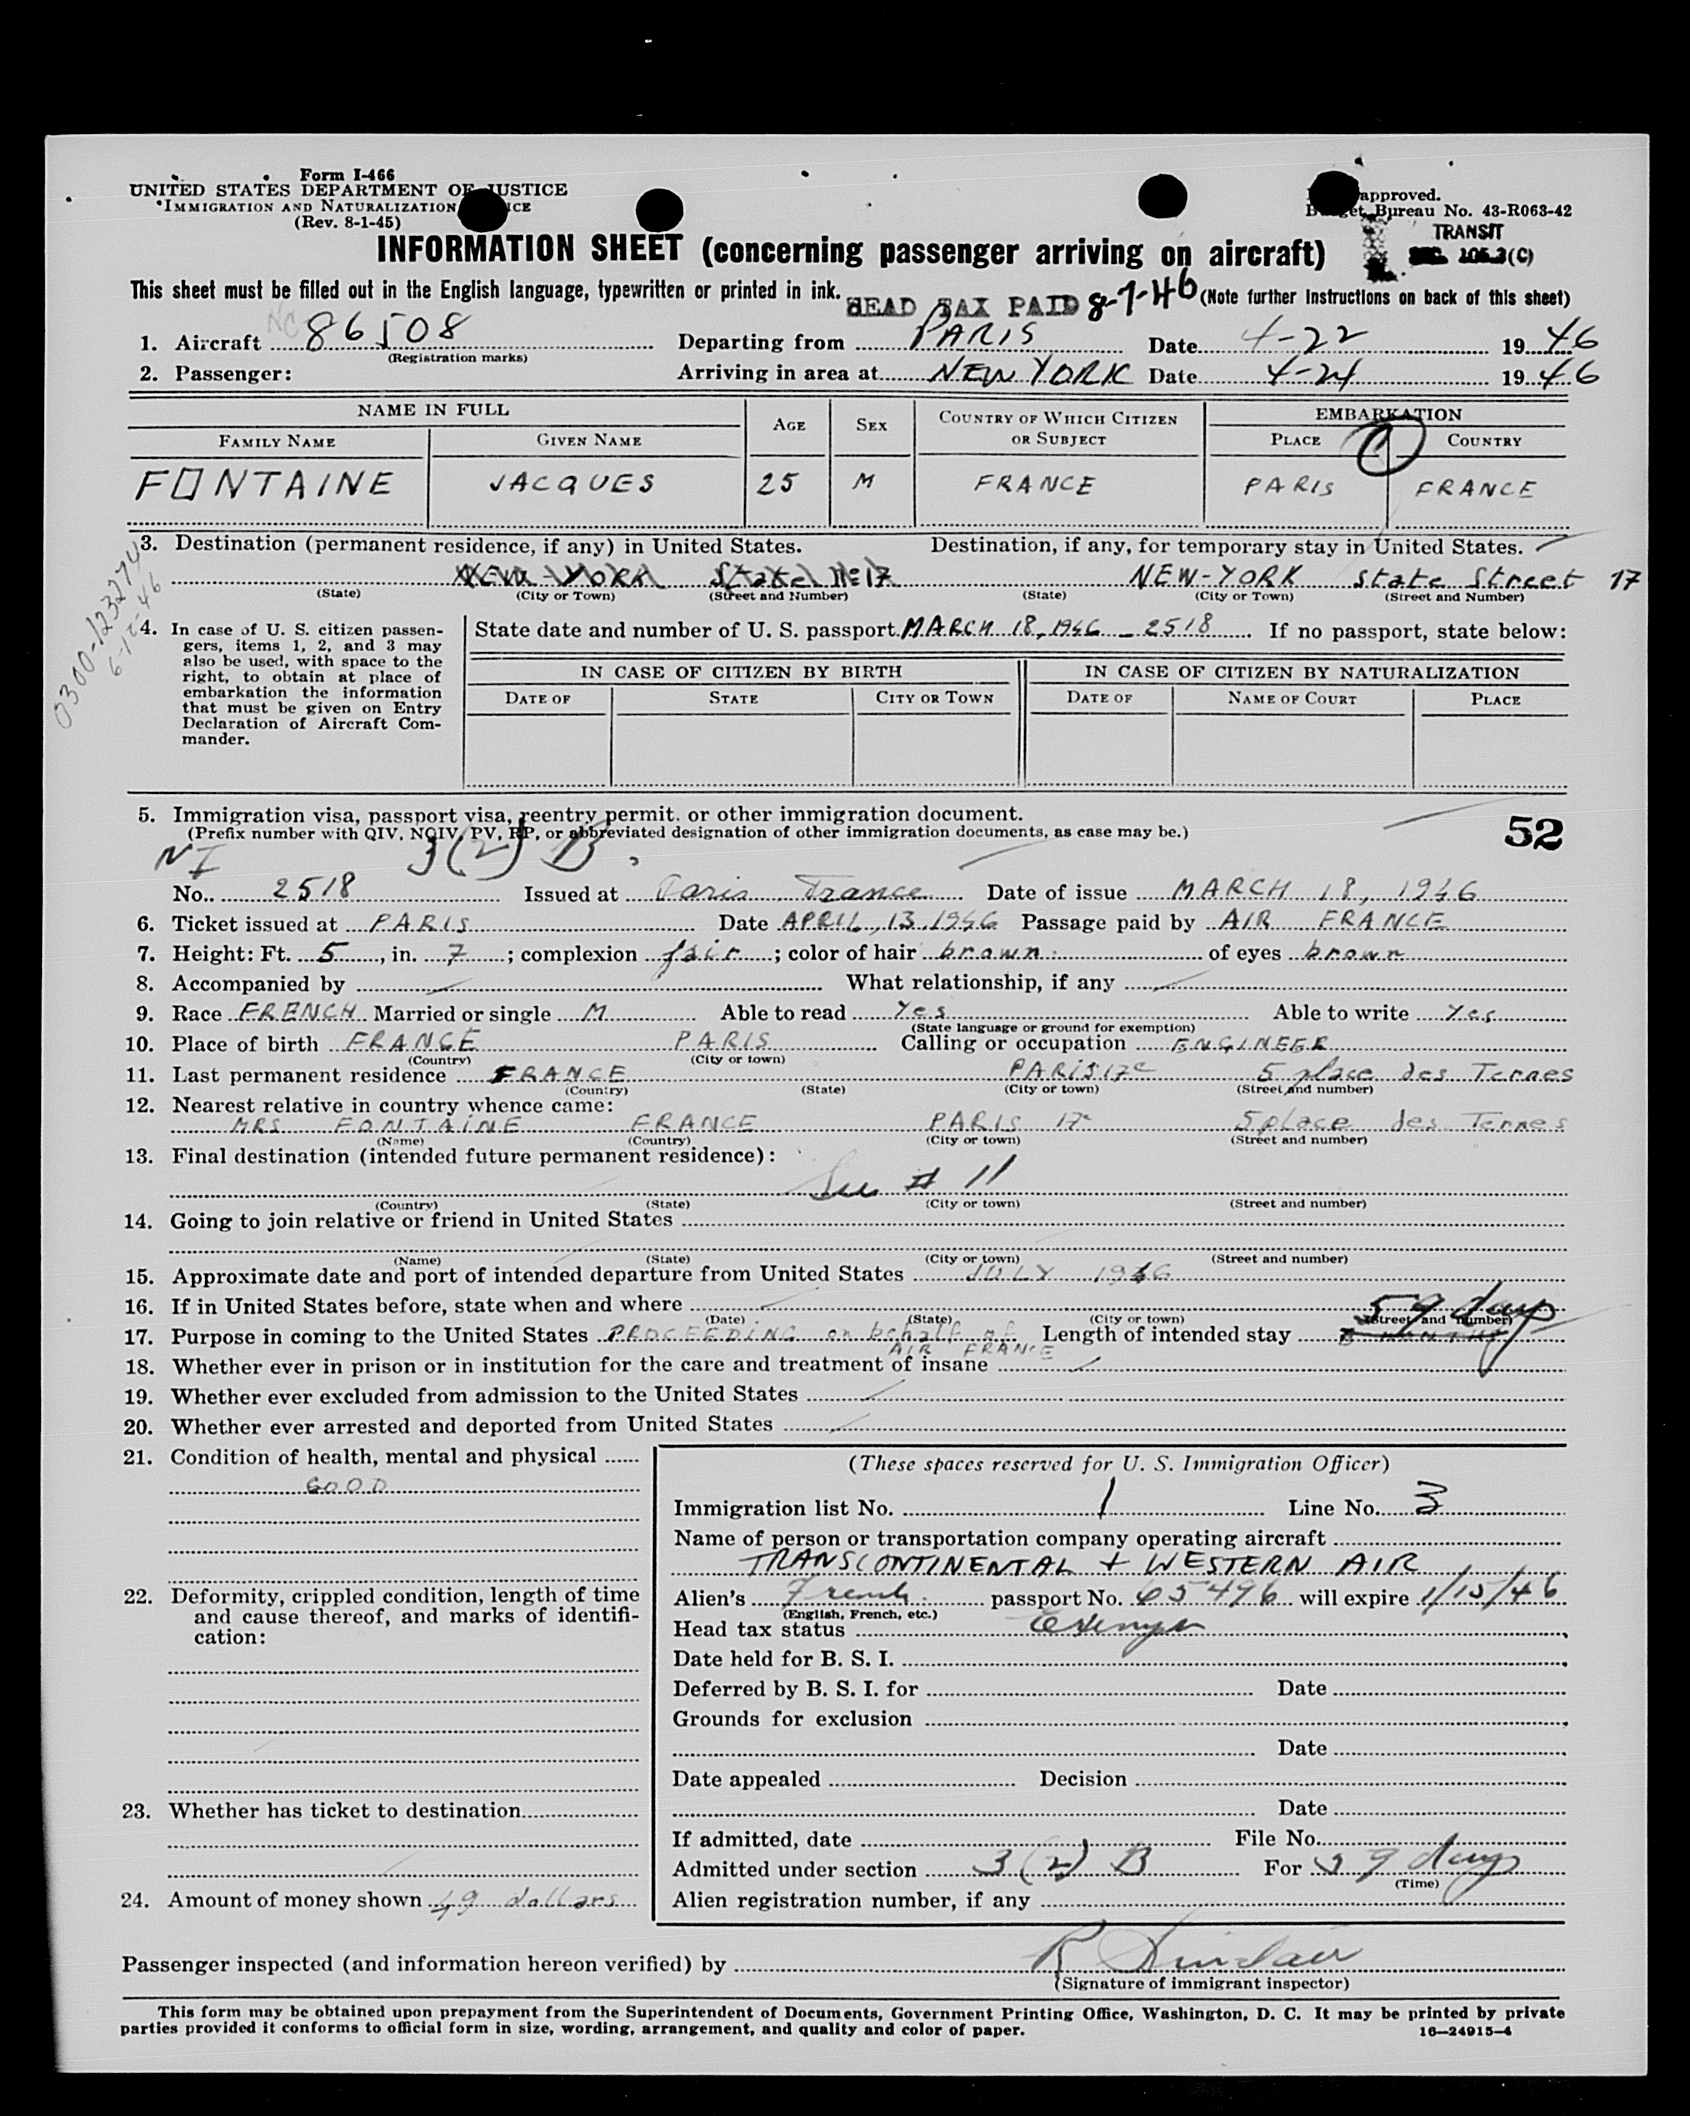 Form I-466
UNITED STATES DEPARTMENT OF JUSTICE
IMMIGRATION AND NATURALIZATION
(Rev. 8-1-45)
approved.
Bureau No. 43-R063-42
TRANSIT
105.3(C)
INFORMATION SHEET (concerning passenger arriving on aircraft)
This sheet must be filled out in the English language, typewritten or printed in ink.
HEAD TAX PAID 8-7-46 (Note further instructions on back of this sheet)
1. Aircraft NC 86508 Departing from PARIS Date 4-22 1946
(Registration marks)
2. Passenger: Arriving in area at NEW YORK Date 4-24 1946
NAME IN FULL AGE SEX COUNTRY OF WHICH CITIZEN OR SUBJECT EMBARKATION
FAMILY NAME GIVEN NAME PLACE 1 COUNTRY
FONTAINE JACQUES 25 M FRANCE PARIS FRANCE
3. Destination (permanent residence, if any) in United States. Destination, if any, for temporary stay in United States.
NEW-YORK State No 17 NEW-YORK State Street 17
(State) (City or Town) (Street and Number) (State) (City or Town) (Street and Number)
0300-123274
6-12-46
4. In case of U. S. citizen passen-
gers, items 1, 2, and 3 may
also be used, with space to the
right, to obtain at place of
embarkation the information
that must be given on Entry
Declaration of Aircraft Com-
mander.
State date and number of U. S. passport MARCH 18, 1946 - 2518 If no passport, state below:
IN CASE OF CITIZEN BY BIRTH IN CASE OF CITIZEN BY NATURALIZATION
DATE OF STATE CITY OR TOWN DATE OF NAME OF COURT PLACE
5. Immigration visa, passport visa, reentry permit, or other immigration document.
(Prefix number with QIV, NQIV, PV, RP, or abbreviated designation of other immigration documents, as case may be.)
52
NI 3(2) B
No. 2518 Issued at Paris France Date of issue MARCH 18, 1946
6. Ticket issued at PARIS Date APRIL, 13, 1946 Passage paid by AIR FRANCE
7. Height: Ft. 5, in. 7; complexion fair; color of hair brown of eyes brown
8. Accompanied by What relationship, if any
9. Race FRENCH Married or single M Able to read Yes Able to write Yes
(State language or ground for exemption)
10. Place of birth FRANCE PARIS Calling or occupation ENGINEER
(Country) (City or town)
11. Last permanent residence FRANCE PARIS 17e 5 place des Ternes
(Country) (State) (City or town) (Street and number)
12. Nearest relative in country whence came:
MRS FONTAINE FRANCE PARIS 17e 5 place des Ternes
(Name) (Country) (City or town) (Street and number)
13. Final destination (intended future permanent residence):
See # 11
(Country) (State) (City or town) (Street and number)
14. Going to join relative or friend in United States
(Name) (State) (City or town) (Street and number)
15. Approximate date and port of intended departure from United States JULY 1946
16. If in United States before, state when and where
(Date) (State) (City or town) (Street and number)
59 days
17. Purpose in coming to the United States PROCEEDING on behalf of AIR FRANCE Length of intended stay
18. Whether ever in prison or in institution for the care and treatment of insane
19. Whether ever excluded from admission to the United States
20. Whether ever arrested and deported from United States
21. Condition of health, mental and physical
GOOD
22. Deformity, crippled condition, length of time
and cause thereof, and marks of identifi-
cation:
23. Whether has ticket to destination
24. Amount of money shown 49 dollars
(These spaces reserved for U. S. Immigration Officer)
Immigration list No. 1 Line No. 3
Name of person or transportation company operating aircraft
TRANSCONTINENTAL + WESTERN AIR
Alien's French passport No. 65496 will expire 1/15/46
(English, French, etc.)
Head tax status Exempt
Date held for B. S. I.
Deferred by B. S. I. for Date
Grounds for exclusion
Date
Date appealed Decision
Date
If admitted, date File No.
Admitted under section 3(2) B For 59 days
(Time)
Alien registration number, if any
Passenger inspected (and information hereon verified) by R Sinclair
(Signature of immigrant inspector)
This form may be obtained upon prepayment from the Superintendent of Documents, Government Printing Office, Washington, D. C. It may be printed by private
parties provided it conforms to official form in size, wording, arrangement, and quality and color of paper.
16—24915-4